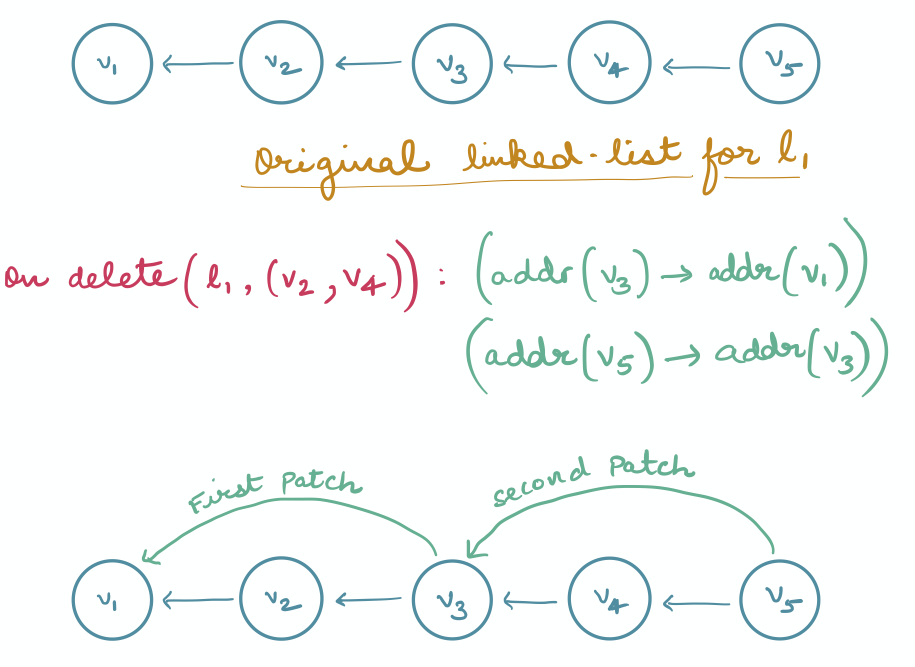 v1 v2 v3 v4 v5
Original linked-list for l1
on delete(l1, (v2, v4)) : (addr(v3) → addr(v1))
(addr(v5) → addr(v3))
First Patch second Patch
v1 v2 v3 v4 v5